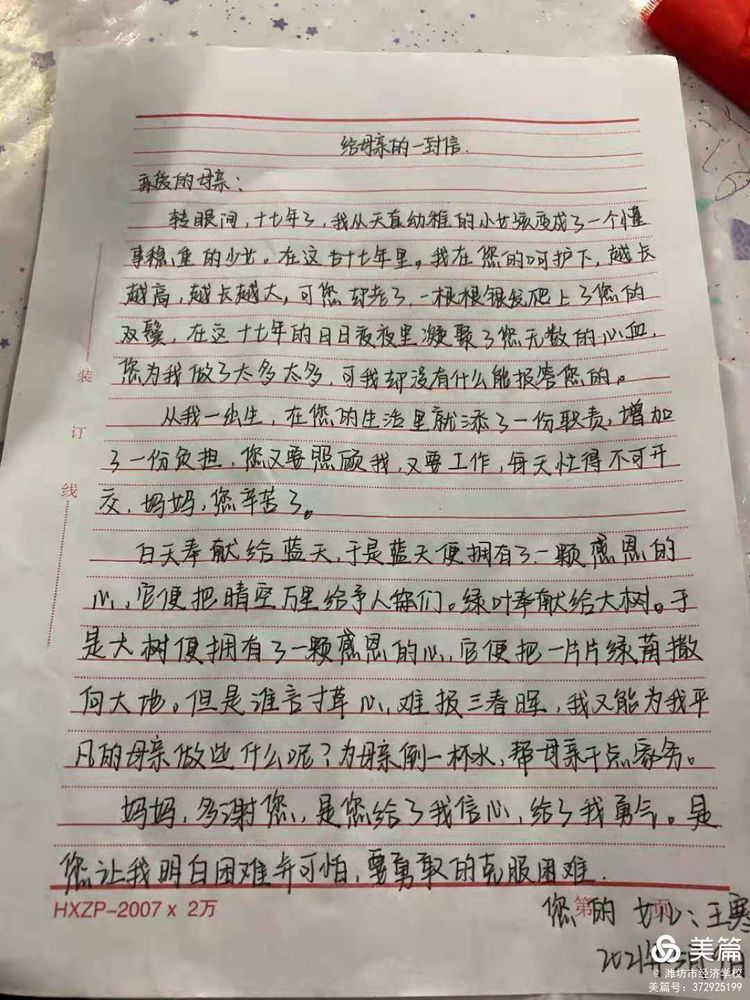 给母亲的一封信.
亲爱的母亲:
转眼间,十七年了,我从天真幼稚的小女孩变成了一个懂
事稳重的少女。在这十七年里,我在您的呵护下,越长
越高,越长越大,可您却老了,一根根银发爬上了您的
双鬓,在这十七年的日日夜夜里凝聚了您无数的心血,
您为我做了太多太多,可我却没有什么能报答您的。
从我一出生,在您的生活里就添了一份职责,增加
了一份负担,您又要照顾我,又要工作,每天忙得不可开
交,妈妈,您辛苦了。
白天奉献给蓝天,于是蓝天便拥有了一颗感恩的
心,它便把晴空万里给予人们。绿叶奉献给大树。于
是大树便拥有了一颗感恩的心,它便把一片片绿荫撒
向大地。但是谁言寸草心,难报三春晖,我又能为我平
凡的母亲做些什么呢?为母亲倒一杯水,帮母亲干点家务。
妈妈,多谢您,是您给了我信心,给了我勇气。是
您让我明白困难并可怕,要勇敢的克服困难.
您的女儿:王
2021年5月9日
装
订
线
HXZP-2007×2万
第 页
美篇
© 潍坊市经济学校
美篇号:372925199